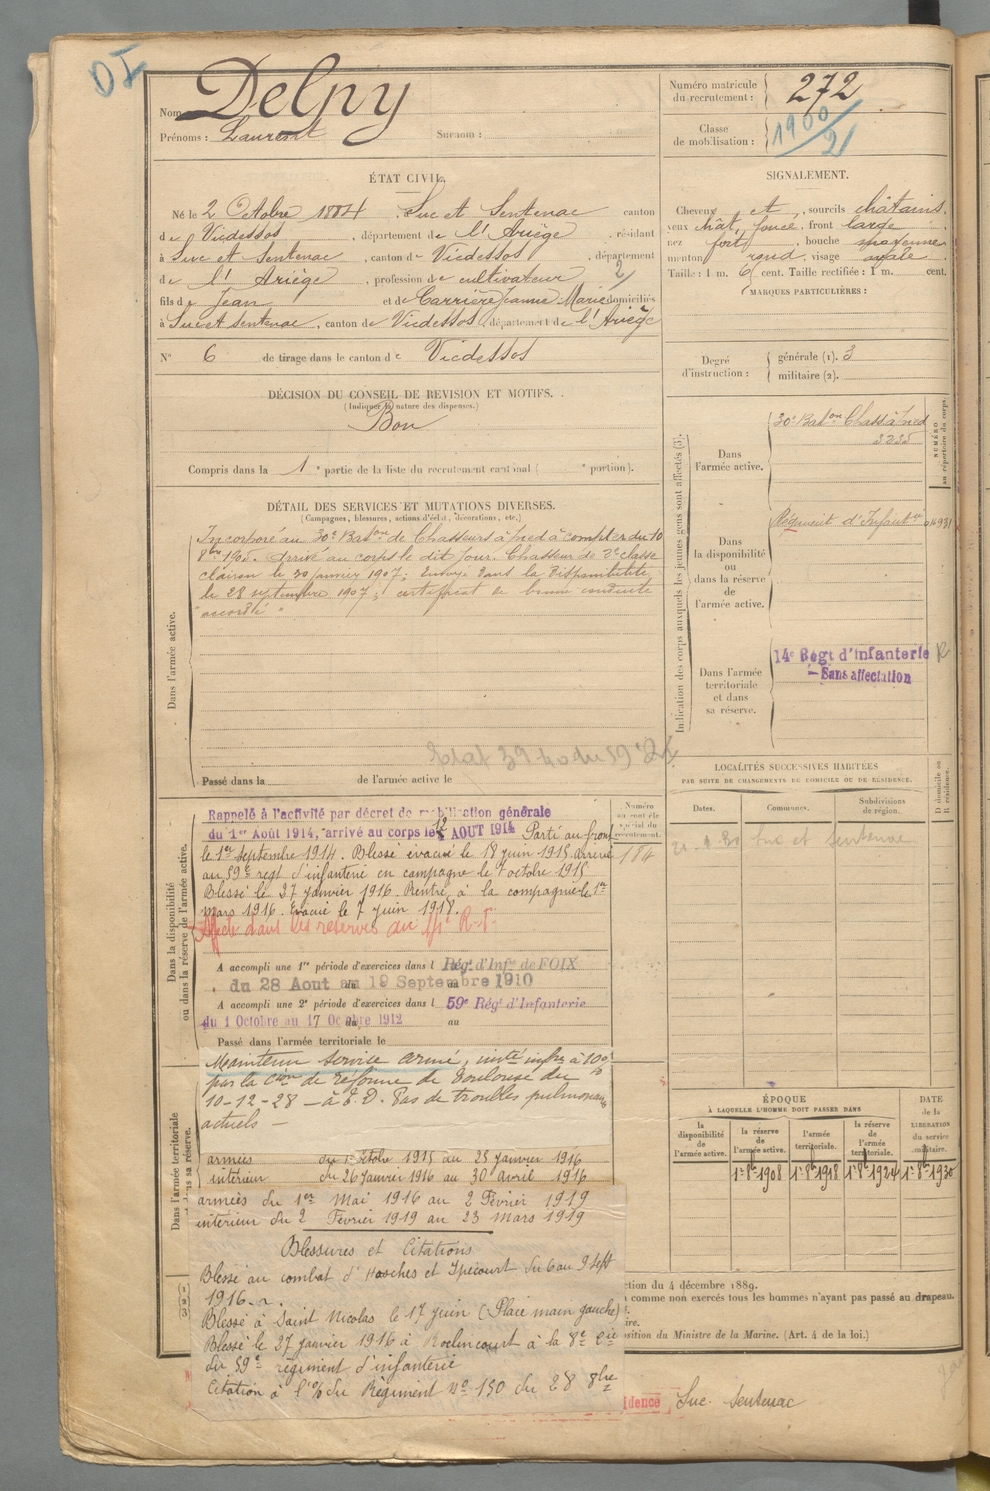 DI
Nom Delpy
Prénoms : Laurent Surnom :
Numéro matricule du recrutement : 272
Classe de mobilisation : 1900/21
ÉTAT CIVIL.
Né le 2 Octobre 1884 à Suc et Sentenac canton
de Vicdessos, département de l'Ariège, résidant
à Suc et Sentenac, canton de Vicdessos, département
de l'Ariège, profession de cultivateur
2/
fils de Jean et de Carrière Jeanne Marie domiciliés
à Suc et Sentenac, canton de Vicdessos, département de l'Ariège
N° 6 de tirage dans le canton de Vicdessos
SIGNALEMENT.
Cheveux et , sourcils châtains,
yeux chât. foncé, front large
nez fort, bouche moyenne
menton rond, visage ovale
Taille : 1 m. 6 cent. Taille rectifiée : 1 m. cent.
MARQUES PARTICULIÈRES :
Degré d'instruction : générale (1). 3
militaire (2).
DÉCISION DU CONSEIL DE REVISION ET MOTIFS.
(Indiquer la nature des dispenses.)
Bon
Compris dans la 1e partie de la liste du recrutement cantonal ( e portion).
DÉTAIL DES SERVICES ET MUTATIONS DIVERSES.
(Campagnes, blessures, actions d'éclat, décorations, etc.)
Dans l'armée active.
Incorporé au 30e Baton de Chasseurs à pied à compter du 10
8bre 1905. Arrivé au corps le dit jour. Chasseur de 2e classe
clairon le 30 janvier 1907; Envoyé dans la disponibilité
le 28 septembre 1907; certificat de bonne conduite
"accordé"
Passé dans la de l'armée active le
Indication des corps auxquels les jeunes gens sont affectés (3).
NUMÉRO au répertoire du corps.
Dans l'armée active.
30e Baton Chass. à pied
3235
Dans la disponibilité ou dans la réserve de l'armée active.
Régiment d'Infantrie
Dans l'armée territoriale et dans sa réserve.
14e Régt d'infanterie
Sans affectation
Dans la disponibilité
ou dans la réserve de l'armée active.
Numéro au contrôle spécial du recrutement.
184
Rappelé à l'activité par décret de mobilisation générale
du 1er Août 1914, arrivé au corps le 12 AOUT 1914 Parti au front
le 1er septembre 1914. Blessé évacué le 18 juin 1915 arrivé
au 59e regt d'infanterie en campagne le 7 octobre 1915
Blessé le 27 janvier 1916 Rentré à la compagnie le 1er
mars 1916. Evacué le 7 juin 1918.
A accompli une 1re période d'exercices dans l Régt d'Infie de FOIX
du 28 Aout au 19 Septembre 1910
A accompli une 2e période d'exercices dans l 59e Régt d'Infanterie
du 1 Octobre au 17 Octobre 1912 au
Passé dans l'armée territoriale le
LOCALITÉS SUCCESSIVES HABITÉES
PAR SUITE DE CHANGEMENTS DE DOMICILE OU DE RÉSIDENCE.
Dates. Communes. Subdivisions de région.
D domicile ou R résidence.
Suc et Sentenac
Dans l'armée territoriale
Maintenu service armé, invté infre à 10%
par la Cion de réforme de Toulouse du
10-12-28 — à E.D. Pas de troubles pulmonaires
actuels —
armées du 1er Octobre 1915 au 25 Janvier 1916
intérieur du 26 Janvier 1916 au 30 avril 1916
armées du 1er Mai 1916 au 2 Février 1919
intérieur du 2 Février 1919 au 23 Mars 1919
Blessures et Citations
Blessé au combat d' et Ypécourt du 6 au 9 Sept
Blessé à Saint Nicolas le 17 juin (Place main gauche)
Blessé le 27 janvier 1916 à Roclincourt à la 8e Cie
du 59e régiment d'infanterie
Citation à l'o/ du Régiment No 150 du 28 8bre
ÉPOQUE
À LAQUELLE L'HOMME DOIT PASSER DANS
DATE de la LIBÉRATION du service militaire.
la disponibilité de l'armée active. la réserve de l'armée active. l'armée territoriale. la réserve de l'armée territoriale.
1er 8bre 1908 1er 8bre 1918 1er 8bre 1924 1er 8bre 1930
ction du 4 décembre 1889.
comme non exercés tous les hommes n'ayant pas passé au drapeau.
ire.
sition du Ministre de la Marine. (Art. 4 de la loi.)
idence Suc-Sentenac